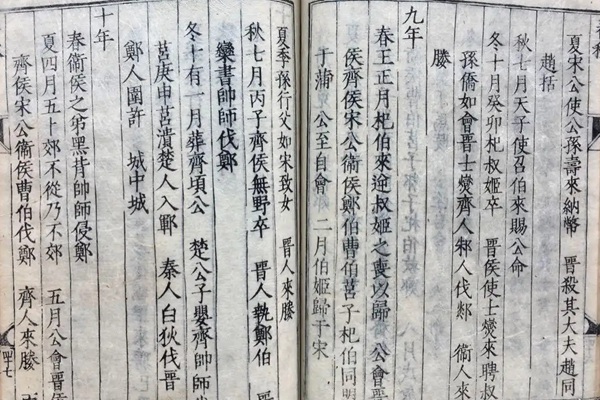 夏宋公使公孫壽來納幣　晉殺其大夫趙同
趙括
秋七月天子使召伯來賜公命
冬十月癸卯杞叔姬卒　晉侯使士燮來聘叔
孫僑如會晉士燮齊人邾人伐郯　衛人來
媵
九年
春王正月杞伯來逆叔姬之喪以歸　公會晉
侯齊侯宋公衛侯鄭伯曹伯莒子杞伯同盟
于蒲　公至自會　二月伯姬歸于宋
夏季孫行父如宋致女　晉人來媵
秋七月丙子齊侯無野卒　晉人執鄭伯　晉
欒書帥師伐鄭
冬十有一月葬齊頃公　楚公子嬰齊帥師
莒庚申莒潰楚人入鄆　秦人白狄伐晉
鄭人圍許　城中城
十年
春衛侯之弟黑背帥師侵鄭
夏四月五卜郊不從乃不郊　五月公會晉侯
齊侯宋公衛侯曹伯伐鄭　齊人來媵
四十七